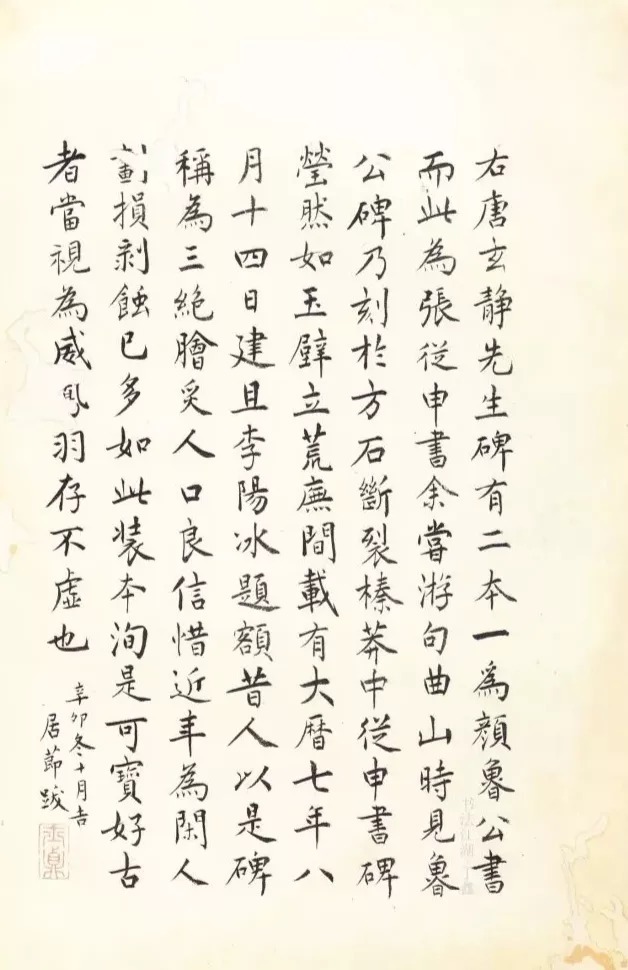 右唐玄静先生碑有二本一爲顔魯公書
而此為張從申書余嘗游句曲山時見魯
公碑乃刻於方石斷裂榛莽中從申書碑
瑩然如玉壁立荒廡間載有大曆七年八
月十四日建且李陽冰題額昔人以是碑
稱為三絶膾炙人口良信惜近年為閑人
劃損剥蝕已多如此装本洵是可寶好古
者當視為威鳳羽存不虛也
辛卯冬十月吉
居節跋
书法江湖